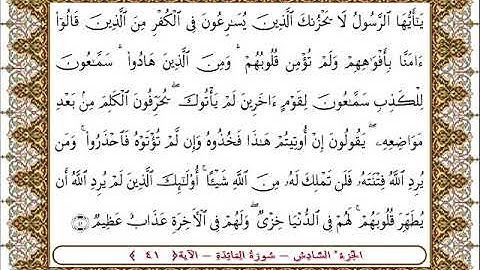 يَـٰٓأَيُّهَا ٱلرَّسُولُ لَا يَحْزُنكَ ٱلَّذِينَ يُسَـٰرِعُونَ فِى ٱلْكُفْرِ مِنَ ٱلَّذِينَ قَالُوٓا۟
ءَامَنَّا بِأَفْوَٰهِهِمْ وَلَمْ تُؤْمِن قُلُوبُهُمْ ۛ وَمِنَ ٱلَّذِينَ هَادُوا۟ ۛ سَمَّـٰعُونَ
لِلْكَذِبِ سَمَّـٰعُونَ لِقَوْمٍ ءَاخَرِينَ لَمْ يَأْتُوكَ ۖ يُحَرِّفُونَ ٱلْكَلِمَ مِنۢ بَعْدِ
مَوَاضِعِهِۦ ۖ يَقُولُونَ إِنْ أُوتِيتُمْ هَـٰذَا فَخُذُوهُ وَإِن لَّمْ تُؤْتَوْهُ فَٱحْذَرُوا۟ ۚ وَمَن
يُرِدِ ٱللَّهُ فِتْنَتَهُۥ فَلَن تَمْلِكَ لَهُۥ مِنَ ٱللَّهِ شَيْـًٔا ۚ أُو۟لَـٰٓئِكَ ٱلَّذِينَ لَمْ يُرِدِ ٱللَّهُ أَن
يُطَهِّرَ قُلُوبَهُمْ ۚ لَهُمْ فِى ٱلدُّنْيَا خِزْىٌ ۖ وَلَهُمْ فِى ٱلْـَٔاخِرَةِ عَذَابٌ عَظِيمٌ ٤١
الجزء السادس – سورة المائدة – الآية﴿ ٤١ ﴾